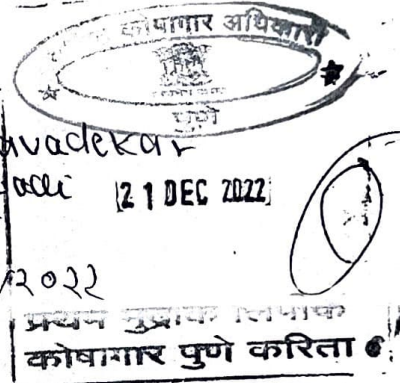 कोषागार अधिकारी
पुणे
avadekar
21 DEC 2022
/२०२२
प्रथम मुद्रांक लिपीक
कोषागार पुणे करिता